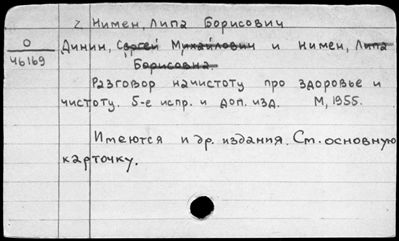 2 Нимен, Липа Борисович
О
46169
Динин, Сергей Михайлович и Нимен, Липа
Борисовна
Разговор начистоту про здоровье и
чистоту. 5-е испр. и доп. изд. М, 1955.
Имеются и др. издания. См. основную
карточку.